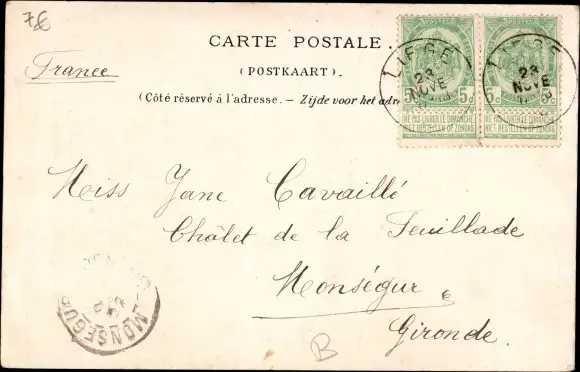 7€
CARTE POSTALE.
(POSTKAART).
(Côté réservé à l'adresse. — Zijde voor het adr
France
POSTES
POSTES
LIEGE
23
NOVE
LIEGE
23
NOVE
5c
5c
5c
NE PAS LIVRER LE DIMANCHE
NIET BESTELLEN OP ZONDAG
NE PAS LIVRER LE DIMANCHE
NIET BESTELLEN OP ZONDAG
Miss Jane Cavaillé
Châlet de la Feuillade
Monségur
Gironde.
MONSEGUR
B